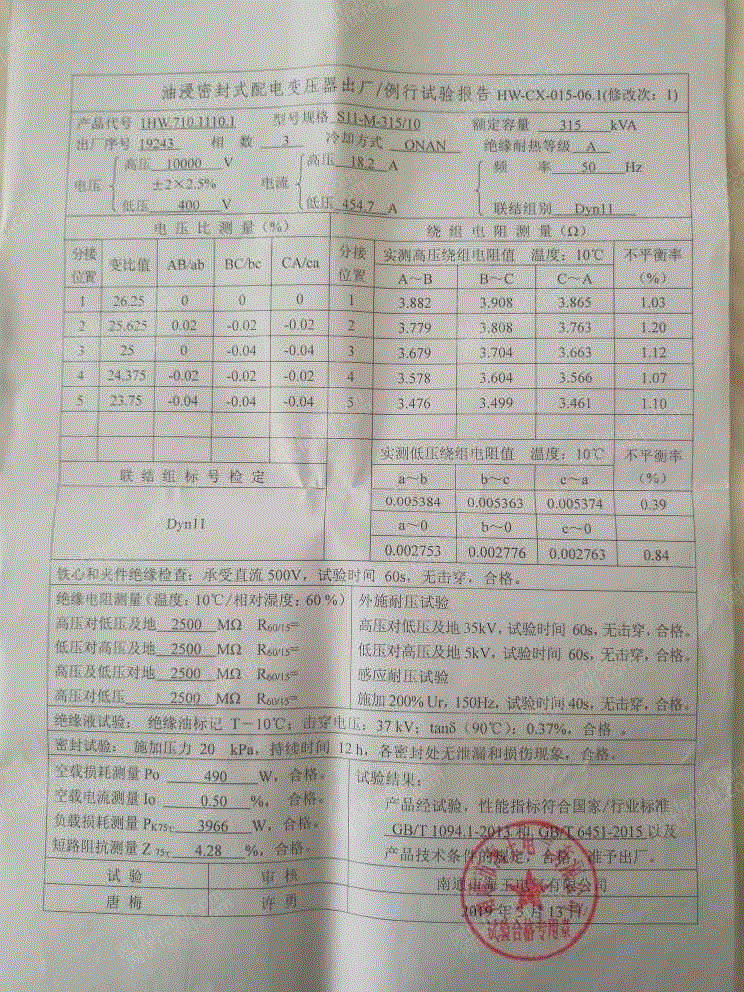 油浸密封式配电变压器出厂/例行试验报告 HW-CX-015-06.1(修改次：1)
产品代号 1HW.710.1110.1 型号规格 S11-M-315/10 额定容量 315 kVA
出厂序号 19243 相 数 3 冷却方式 ONAN 绝缘耐热等级 A
电压 高压 10000 V ±2×2.5% 低压 400 V
电流 高压 18.2 A 低压 454.7 A
频 率 50 Hz
联结组别 Dyn11
电 压 比 测 量（%） 绕 组 电 阻 测 量（Ω）
分接位置 变比值 AB/ab BC/bc CA/ca 分接位置 实测高压绕组电阻值 温度：10℃ 不平衡率（%）
A～B B～C C～A
1 26.25 0 0 0 1 3.882 3.908 3.865 1.03
2 25.625 0.02 -0.02 -0.02 2 3.779 3.808 3.763 1.20
3 25 0 -0.04 -0.04 3 3.679 3.704 3.663 1.12
4 24.375 -0.02 -0.02 -0.02 4 3.578 3.604 3.566 1.07
5 23.75 -0.04 -0.04 -0.04 5 3.476 3.499 3.461 1.10
实测低压绕组电阻值 温度：10℃ 不平衡率（%）
联 结 组 标 号 检 定 a～b b～c c～a
0.005384 0.005363 0.005374 0.39
Dyn11 a～0 b～0 c～0
0.002753 0.002776 0.002763 0.84
铁心和夹件绝缘检查：承受直流500V，试验时间 60s，无击穿，合格。
绝缘电阻测量（温度：10℃/相对湿度：60 %）
高压对低压及地 2500 MΩ R60/15=
低压对高压及地 2500 MΩ R60/15=
高压及低压对地 2500 MΩ R60/15=
高压对低压 2500 MΩ R60/15=
外施耐压试验
高压对低压及地 35kV，试验时间 60s，无击穿，合格。
低压对高压及地 5kV，试验时间 60s，无击穿，合格。
感应耐压试验
施加200% Ur，150Hz，试验时间 40s，无击穿，合格。
绝缘液试验： 绝缘油标记 T－10℃；击穿电压：37 kV；tanδ（90℃）：0.37%，合格 。
密封试验： 施加压力 20 kPa，持续时间 12 h，各密封处无泄漏和损伤现象，合格。
空载损耗测量 Po 490 W，合格。
空载电流测量 Io 0.50 %， 合格。
负载损耗测量 PK75℃ 3966 W，合格。
短路阻抗测量 Z 75℃ 4.28 %，合格。
试验结果：
产品经试验，性能指标符合国家/行业标准
GB/T 1094.1-2013 和 GB/T 6451-2015 以及
产品技术条件的规定，合格，准予出厂。
试 验 审 核
唐 梅 许 勇
南通市海王电气有限公司
2019 年 5 月 13 日
试验合格专用章